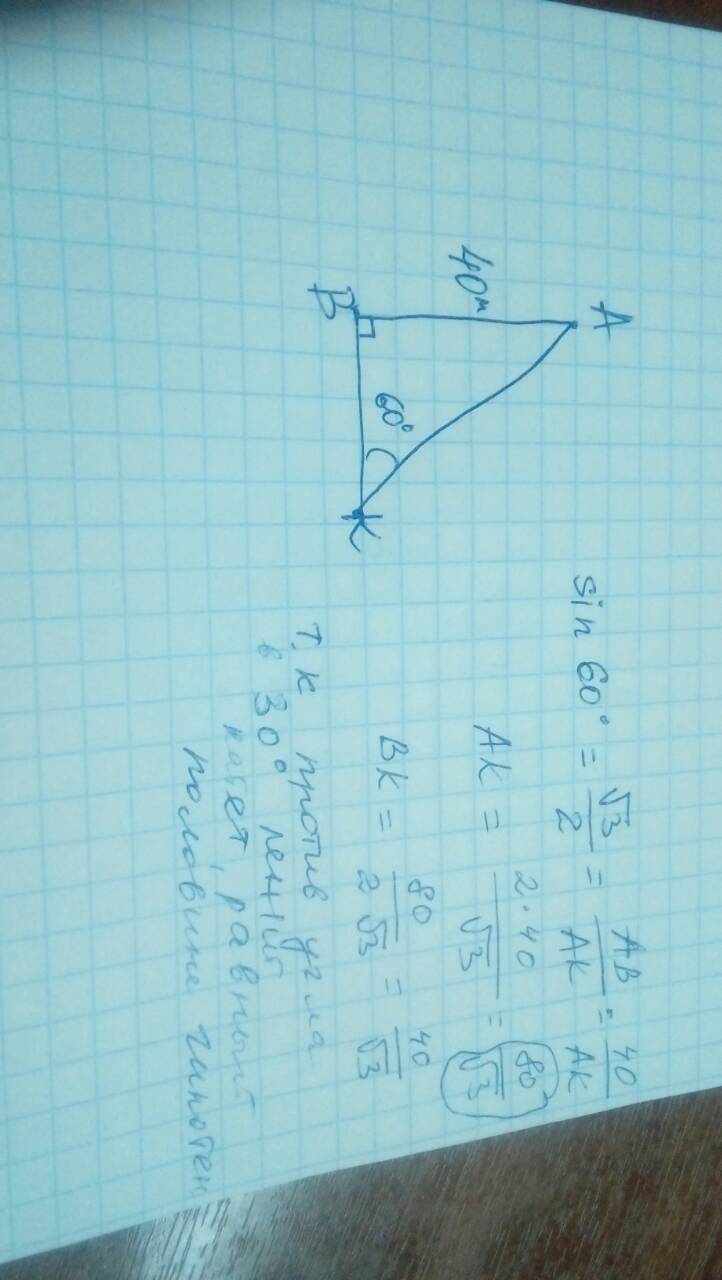 A
40м
B
60°
K
sin 60° = √3/2 = AB/AK = 40/AK
AK = 2·40/√3 = 80/√3
BK = 80/2√3 = 40/√3
т.к против угла
в 30° лежит
катет, равный
половине гипотен